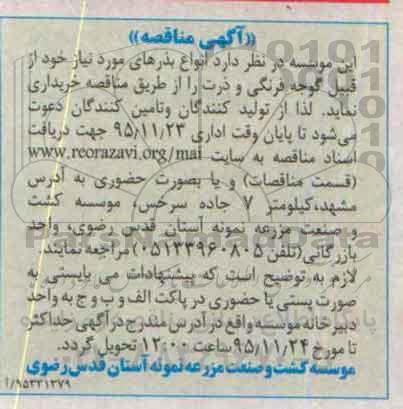 ((آگهی مناقصه))
این موسسه در نظر دارد انواع بذرهای مورد نیاز خود از
قبیل گوجه فرنگی و ذرت را از طریق مناقصه خریداری
نماید. لذا از تولید کنندگان وتامین کنندگان دعوت
می‌شود تا پایان وقت اداری ۹۵/۱۱/۲۳ جهت دریافت
اسناد مناقصه به سایت www.reorazavi.org/mai
(قسمت مناقصات) و یا بصورت حضوری به آدرس
مشهد،کیلومتر ۷ جاده سرخس، موسسه کشت
و صنعت مزرعه نمونه آستان قدس رضوی، واحد
بازرگانی(تلفن ۰۵۱۳۳۹۶۰۸۰۵) مراجعه نمایند.
لازم به توضیح است که پیشنهادات می بایستی به
صورت پستی یا حضوری در پاکت الف و ب و ج به واحد
دبیرخانه موسسه واقع در آدرس مندرج در آگهی حداکثر
تا مورخ ۹۵/۱۱/۲۴ ساعت ۱۲:۰۰ تحویل گردد.
موسسه کشت و صنعت مزرعه نمونه آستان قدس رضوی
۱/۹۵۳۳۱۳۷۹